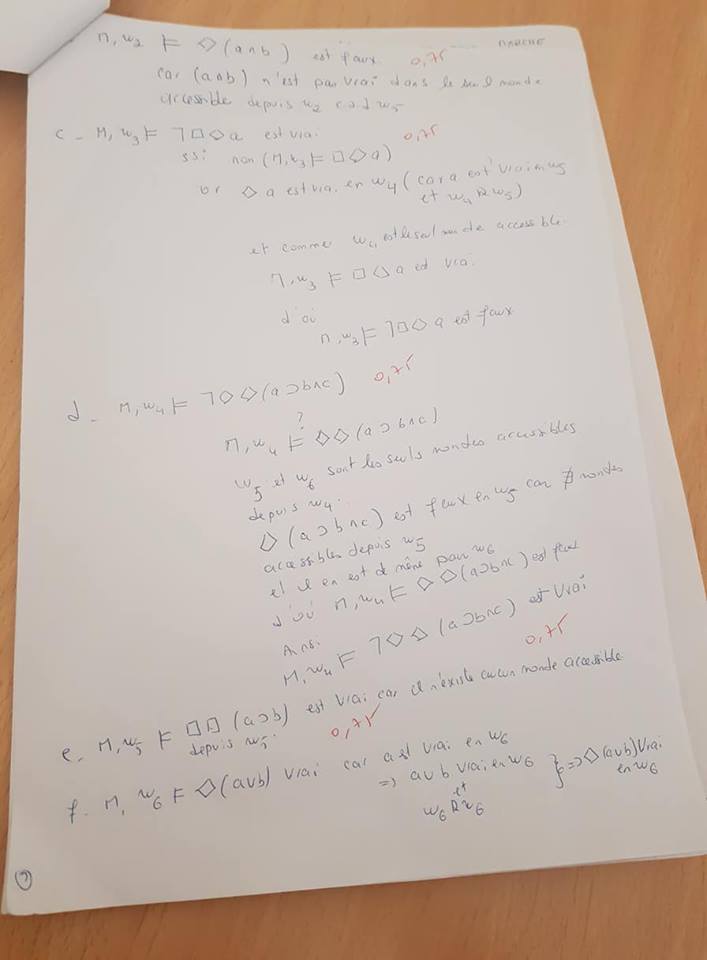 M, w₂ ⊨ ◇(a∧b) est faux. 0,75
car (a∧b) n'est pas vrai dans le seul monde
accessible depuis w₂ c.à.d w₅
c - M, w₃ ⊨ ¬□◇a est vrai 0,75
ssi non (M, w₃ ⊨ □◇a)
or ◇a est vrai en w₄ (car a est vrai en w₅
et w₄Rw₅)
et comme w₄ est le seul monde accessible.
M, w₃ ⊨ □◇a est vrai
d'où
M, w₃ ⊨ ¬□◇a est faux
d - M, w₄ ⊨ ¬◇◇(a⊃b∧c) 0,75
?
M, w₄ ⊨ ◇◇(a⊃b∧c)
w₅ et w₆ sont les seuls mondes accessibles
depuis w₄.
◇(a⊃b∧c) est faux en w₅ car ∄ mondes
accessibles depuis w₅
et il en est de même par w₆
d'où M, w₄ ⊨ ◇◇(a⊃b∧c) est faux
Ainsi
M, w₄ ⊨ ¬◇◇(a⊃b∧c) est vrai
0,75
e. M, w₅ ⊨ □□(a⊃b) est vrai car il n'existe aucun monde accessible
depuis w₅. 0,75
f. M, w₆ ⊨ ◇(a∨b) vrai car a est vrai en w₆
=> a∨b vrai en w₆ } => ◇(a∨b) vrai
et en w₆
w₆Rw₆